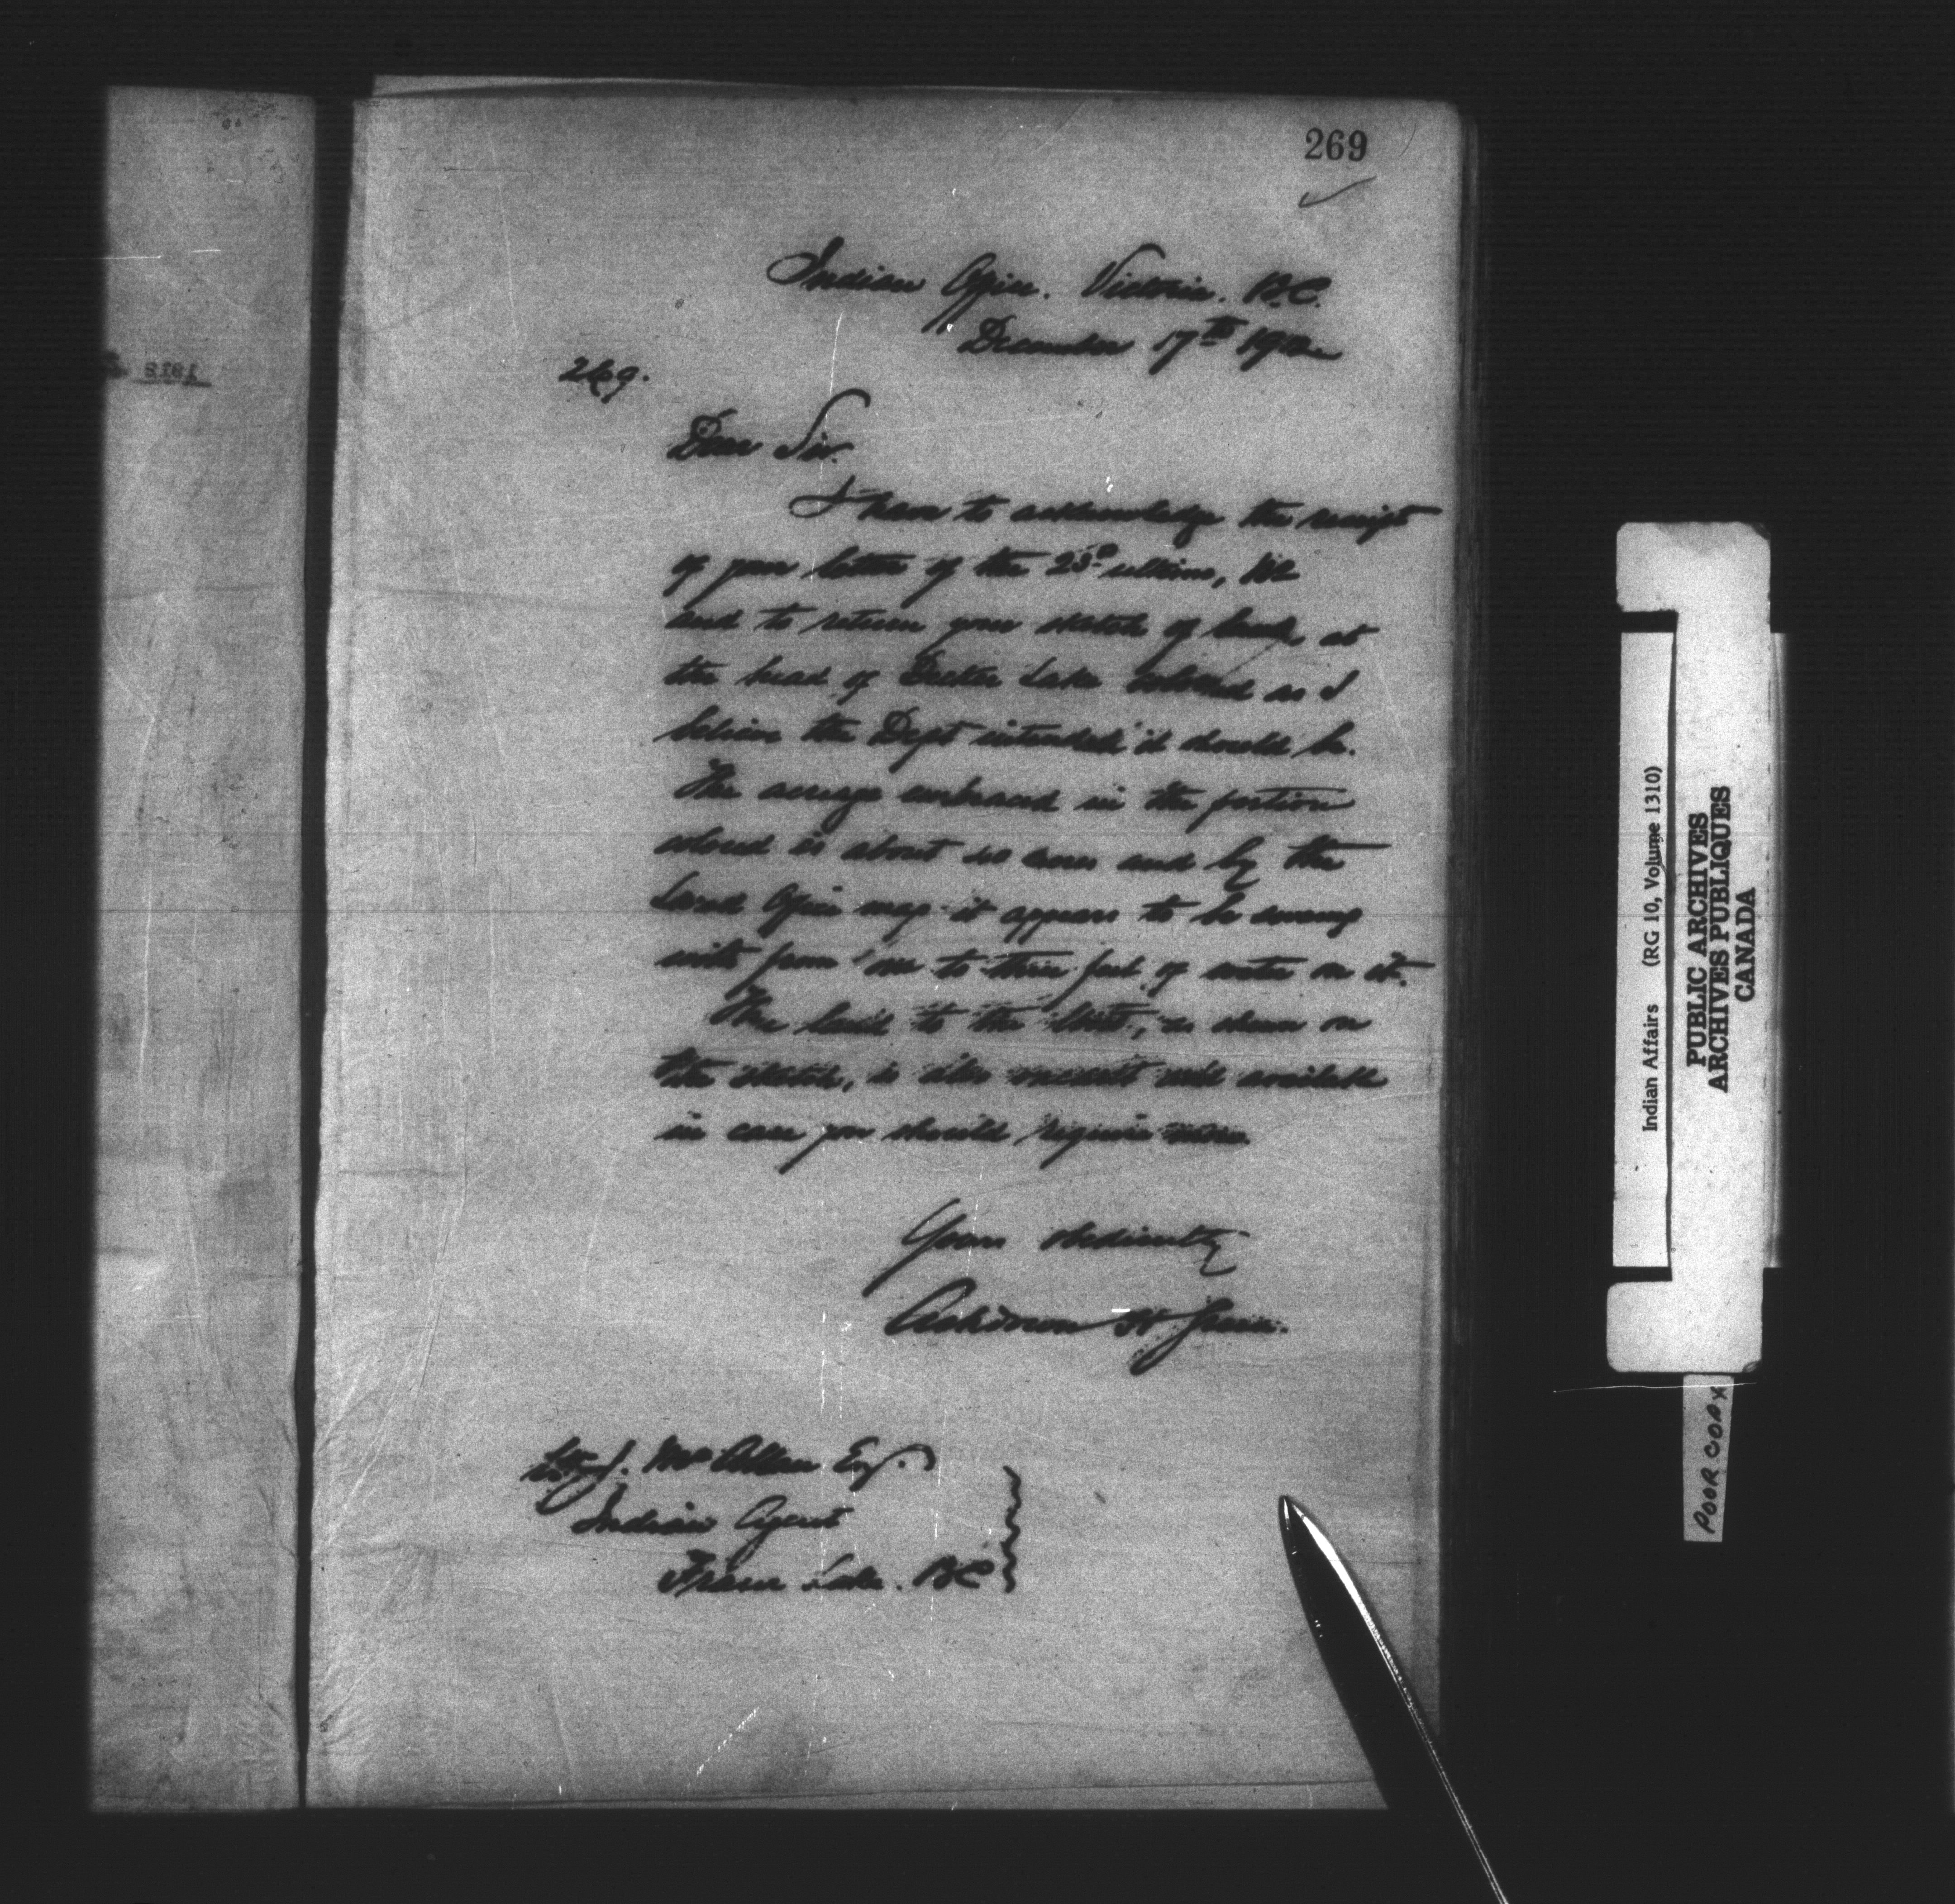 269
Indian Office. Victoria. B.C.
December 17th 1912
269.
Dear Sir.
I have to acknowledge the receipt
of your letter of the 23rd ultimo,
and to return your sketch of lands at
the head of Decker Lake colored as I
believe the Dept intended it should be.
The acreage embraced in the portion
colored is about acres and by the
Land Office map it appears to be swamp
with from one to three feet of water on it.
The land to the West, as shewn on
the sketch, is also vacant and available
in case you should require more.
Yours obediently
Ashdown H Green.
McAllan Esq.
Indian Agent
Fraser Lake. BC
Indian Affairs (RG 10, Volume 1310)
PUBLIC ARCHIVES
ARCHIVES PUBLIQUES
CANADA
POOR COPY